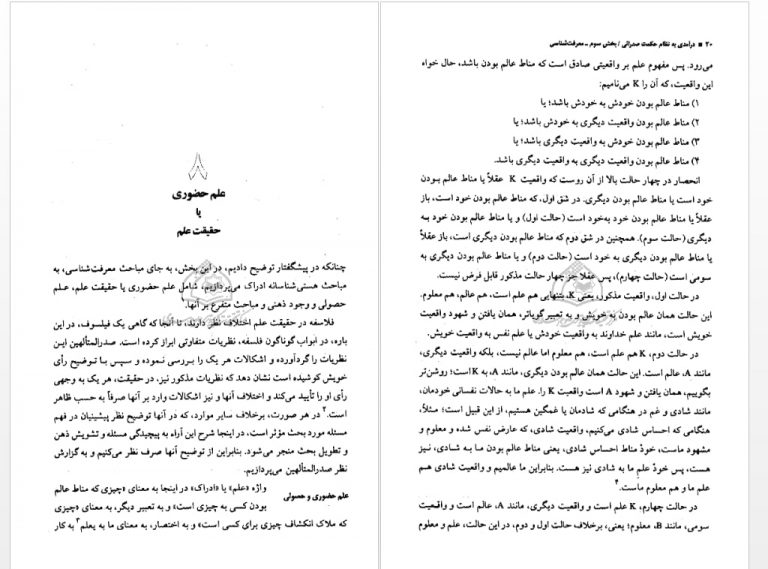 ۸
علم حضوری
یا
حقیقت علم
چنانکه در پیشگفتار توضیح دادیم، در این بخش، به جای مباحث معرفت‌شناسی، به
مباحث هستی‌شناسانه ادراک می‌پردازیم، شامل علم حضوری یا حقیقت علم، علم
حصولی و وجود ذهنی و مباحث متفرع بر آنها.
فلاسفه در حقیقت علم اختلاف نظر دارند، تا آنجا که گاهی یک فیلسوف، در این
باره، در ابواب گوناگون فلسفه، نظریات متفاوتی ابراز کرده است. صدرالمتألهین این
نظریات را گردآورده و اشکالات هر یک را بررسی نموده و سپس با توضیح رأی
خویش کوشیده است نشان دهد که نظریات مذکور نیز، در حقیقت، هر یک به وجهی
رأی او را تأیید می‌کند و اختلاف آنها و نیز اشکالات وارد بر آنها صرفاً به حسب ظاهر
است.۲ در هر صورت، برخلاف سایر موارد، که در آنها توضیح نظر پیشینیان در فهم
مسئله مورد بحث مؤثر است، در اینجا شرح این آراء به پیچیدگی مسئله و تشویش ذهن
و تطویل بحث منجر می‌شود. بنابراین از توضیح آنها صرف نظر می‌کنیم و به گزارش
نظر صدرالمتألهین می‌پردازیم.
علم حضوری و حصولی
واژه «علم» یا «ادراک» در اینجا به معنای «چیزی که مناط عالم
بودن کسی به چیزی است» و به تعبیر دیگر، به معنای «چیزی
که ملاک انکشاف چیزی برای کسی است» و به اختصار، به معنای ما به یعلم۳ به کار
۲۰ ■ درآمدی به نظام حکمت صدرائی / بخش سوم ـ معرفت‌شناسی
می‌رود. پس مفهوم علم بر واقعیتی صادق است که مناط عالم بودن باشد، حال خواه
این واقعیت، که آن را K می‌نامیم:
۱) مناط عالم بودن خودش به خودش باشد؛ یا
۲) مناط عالم بودن واقعیت دیگری به خودش باشد؛ یا
۳) مناط عالم بودن خودش به واقعیت دیگری باشد؛ یا
۴) مناط عالم بودن واقعیت دیگری به واقعیت دیگری باشد.
انحصار در چهار حالت بالا از آن روست که واقعیت K عقلاً یا مناط عالم بودن
خود است یا مناط عالم بودن دیگری. در شق اول، که مناط عالم بودن خود است، باز
عقلاً یا مناط عالم بودن خود به‌خود است (حالت اول) و یا مناط عالم بودن خود به
دیگری (حالت سوم). همچنین در شق دوم که مناط عالم بودن دیگری است، باز عقلاً
یا مناط عالم بودن دیگری به خود است (حالت دوم) و یا مناط عالم بودن دیگری به
سومی است (حالت چهارم)، پس عقلاً جز چهار حالت مذکور قابل فرض نیست.
در حالت اول، واقعیت مذکور، یعنی K، بتنهایی هم علم است، هم عالم، هم معلوم.
این حالت همان عالم بودن به خویش و به تعبیر گویاتر، همان یافتن و شهود واقعیت
خویش است، مانند علم خداوند به واقعیت خودش یا علم نفس به واقعیت خویش.
در حالت دوم، K هم علم است، هم معلوم اما عالم نیست، بلکه واقعیت دیگری،
مانند A، عالم است. این حالت همان عالم بودن دیگری، مانند A، به K است؛ روشن‌تر
بگوییم، همان یافتن و شهود A است واقعیت K را. علم ما به حالات نفسانی خودمان،
مانند شادی و غم در هنگامی که شادمان یا غمگین هستیم، از این قبیل است؛ مثلاً،
هنگامی که احساس شادی می‌کنیم، واقعیت شادی، که عارض نفس شده و معلوم و
مشهود ماست، خودْ مناط احساس شادی، یعنی مناط عالم بودن ما به شادی، نیز
هست، پس خودْ علم ما به شادی نیز هست. بنابراین ما عالمیم و واقعیت شادی هم
علم ما و هم معلوم ماست.۴
در حالت چهارم، K علم است و واقعیت دیگری، مانند A، عالم است و واقعیت
سومی، مانند B، معلوم؛ یعنی، برخلاف حالت اول و دوم، در این حالت، علم و معلوم